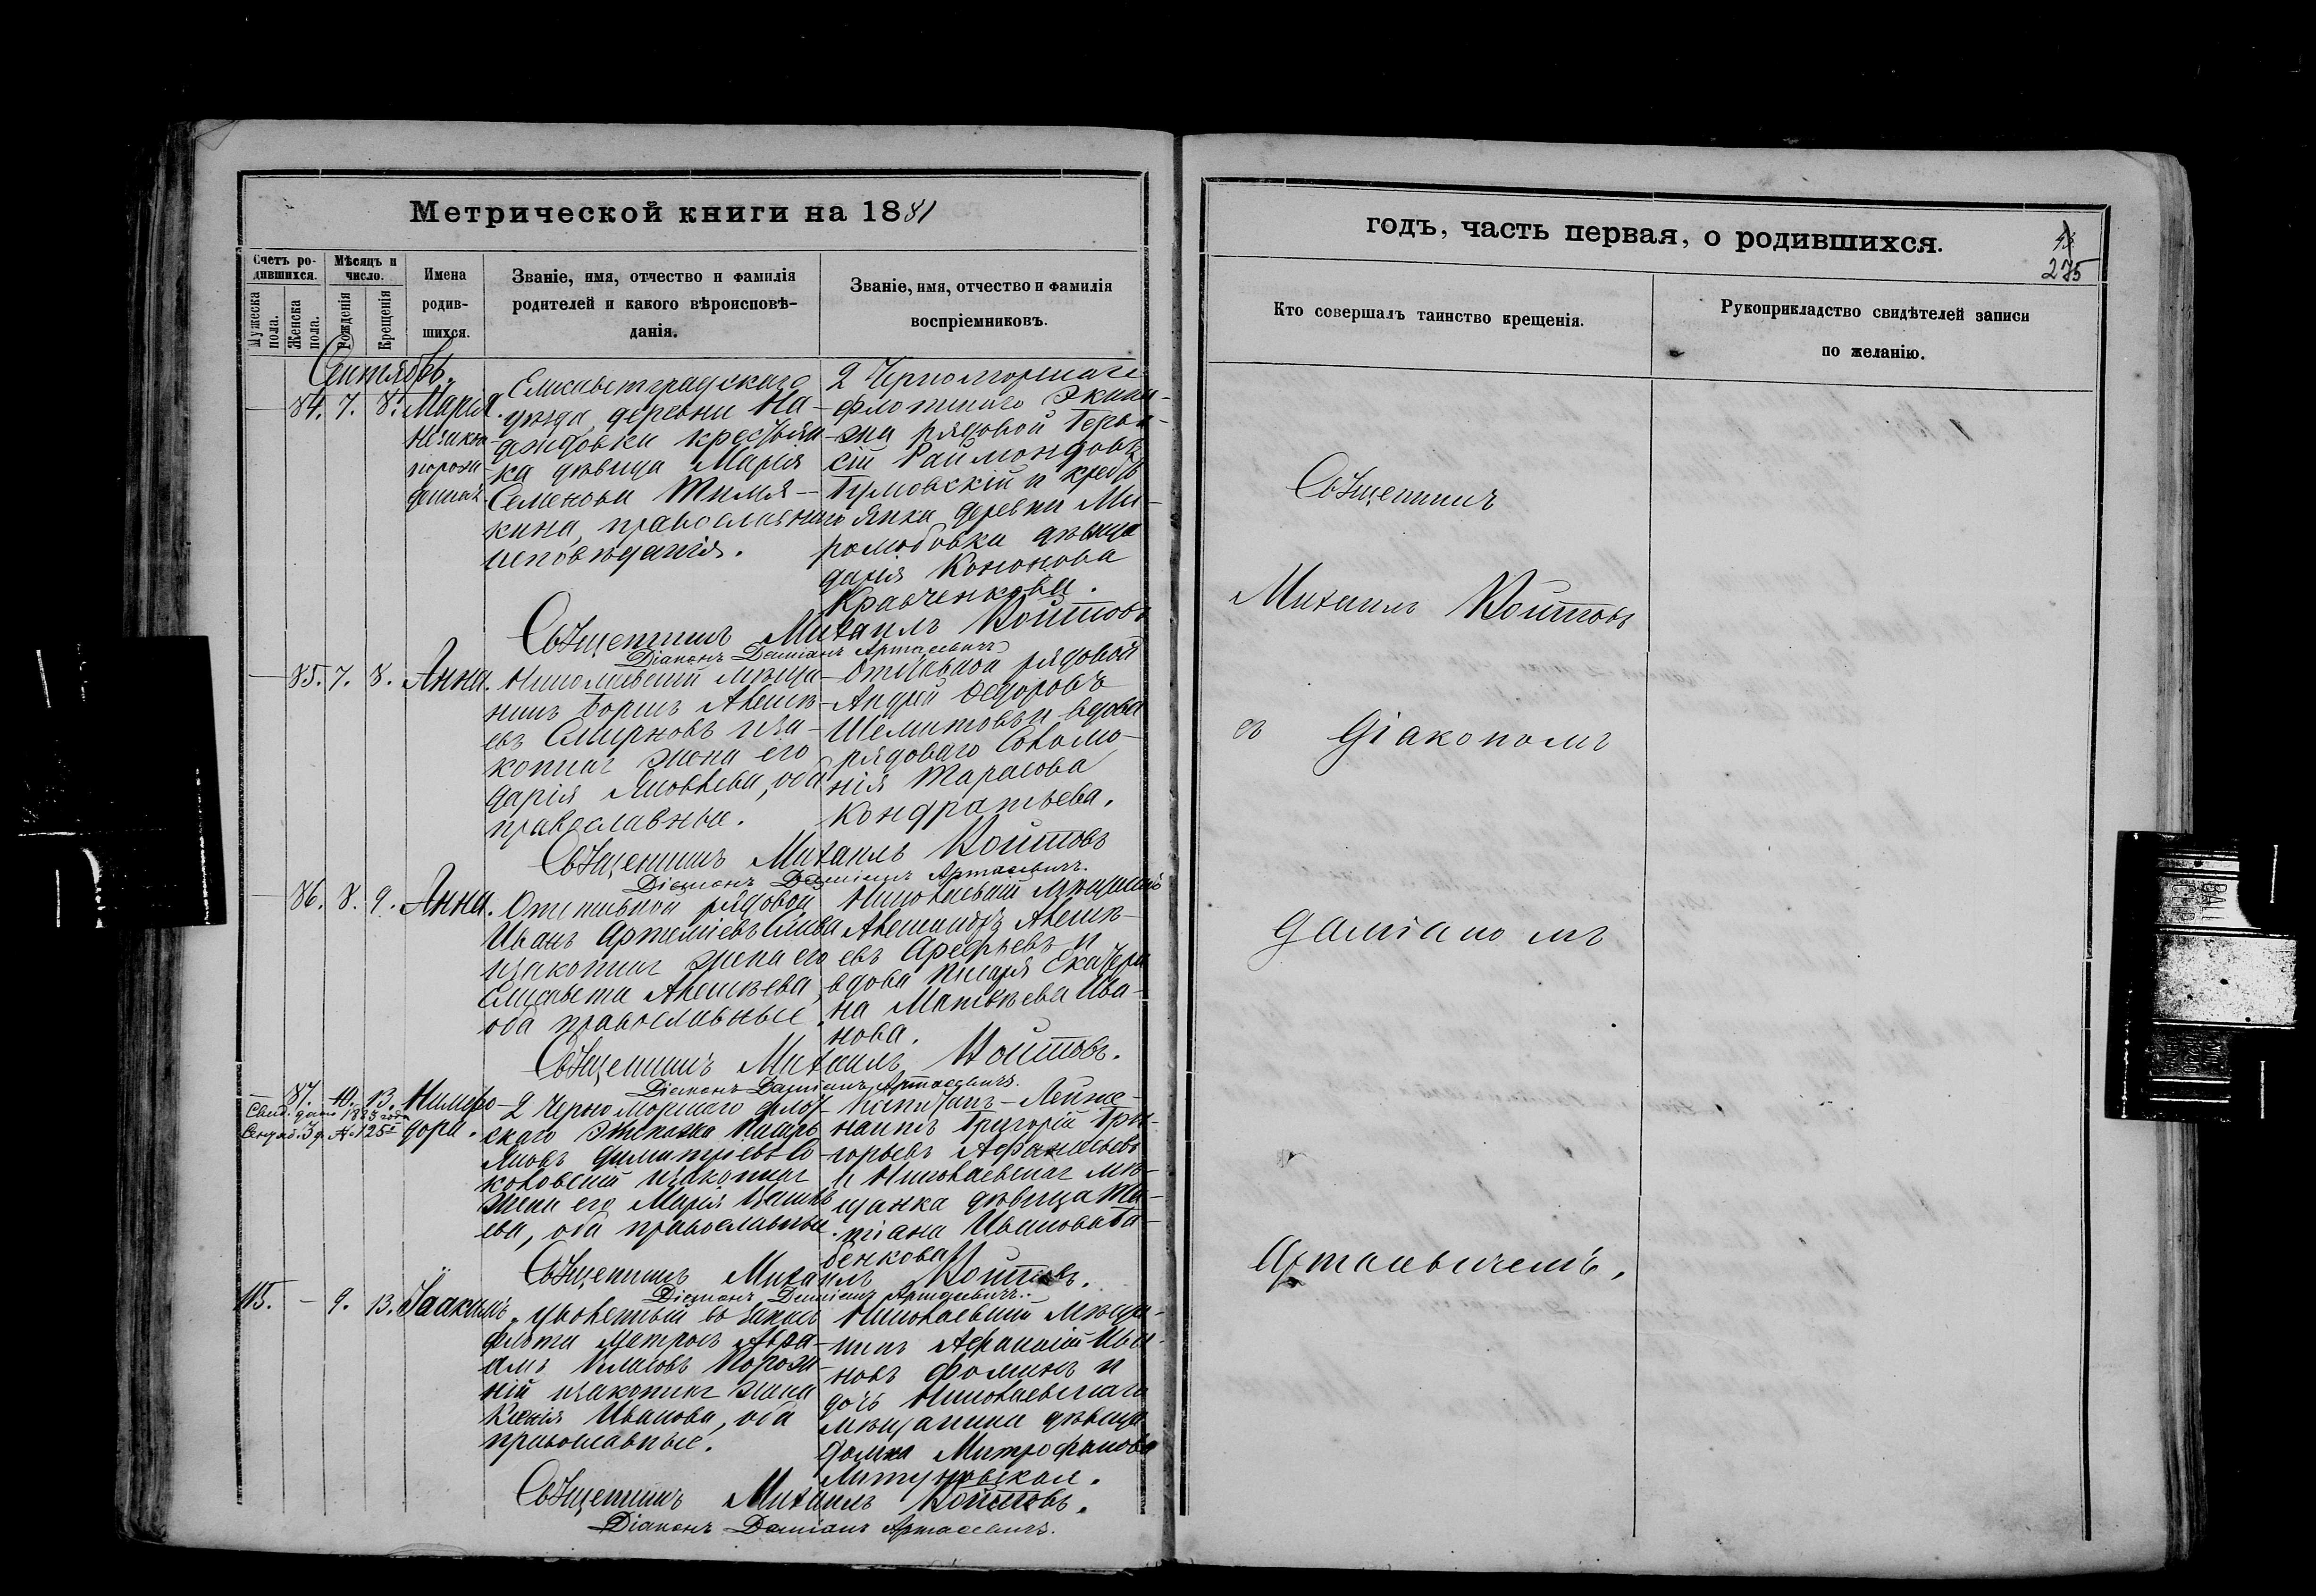 Метрической книги на 1881
Счетъ ро-
дившихся.
Мужеска
пола.
Женска
пола.
Мѣсяцъ и
число.
Рожденія
Крещенія
Имена
родив-
шихся.
Званіе, имя, отчество и фамилія
родителей и какого вѣроисповѣ-
данія.
Званіе, имя, отчество и фамилія
воспріемниковъ.
Сентябрь.
84. 7. 8. Марія
незакон
норож
денная
Елисаветградскаго
уѣзда, деревни На-
деждовки крестьян
ка дѣвица Марія
Семенова Тимя-
кина, православнаго
исповѣданія.
2 Черноморскаго
флотскаго Экипа-
жа рядовой
Раймондовъ
и крестъ
янка деревни Ми-
ролюбовки дѣвица
Дарія Кононова
Кравченкова.
Священникъ Михаилъ Войтовъ
Діаконъ Даміанъ Артасевичъ
85. 7. 8. Анна.
Николаевскій мѣща-
нинъ Борисъ Алексѣ-
евъ Смирновъ и за-
конная жена его
Дарія Яковлева, оба
православные.
Отставной рядовой
Андрей Ѳедоровъ
и вдова
рядоваго Соломо-
нія Тарасова
Кондратьева.
Священникъ Михаилъ Войтовъ
Діаконъ Даміанъ Артасевичъ.
86. 8. 9. Анна.
Отставной рядовой
Иванъ Артеміевъ
изаконная жена его
Елисавета Алексѣева,
оба православные.
Николаевскій мѣщанинъ
Александръ Алексѣ-
евъ Арефьевъ и
вдова писаря Екатери
на Матвѣева Ива-
нова.
Священникъ Михаилъ Войтовъ.
Діаконъ Даміанъ Артасевичъ.
87. 10. 13. Нимфо
дора.
Свид. дано 1885 года
2 Черноморскаго флот
скаго Экипажа писарь
Яковъ Димитріевъ Со-
коловскій изаконная
жена его Марія
ева, оба православные.
Капитанъ-Лейте-
нантъ Григорій Гри-
горьевъ Афанасьевъ
и Николаевская мѣ-
щанка дѣвица Та-
тіана Иванова Га-
бенкова
Священникъ Михаилъ Войтовъ.
Діаконъ Даміанъ Артасевичъ.
115. — 9. 13. Іоакимъ.
Уволенный въ запасъ
флота матросъ Авра-
амъ Власовъ
изаконная жена
Ксенія Иванова, оба
православные.
Николаевскій мѣща-
нинъ Афанасій Ива-
новъ Фоминъ и
дочь Николаевскаго
мѣщанина дѣвица
Домна Митрофанова
Священникъ Михаилъ Войтовъ.
Діаконъ Даміанъ Артасевичъ.
годъ, часть первая, о родившихся.
275
Кто совершалъ таинство крещенія.
Рукоприкладство свидѣтелей записи
по желанію.
Священникъ
Михаилъ Войтовъ
съ Діакономъ
Даміаномъ
Артасевичемъ.